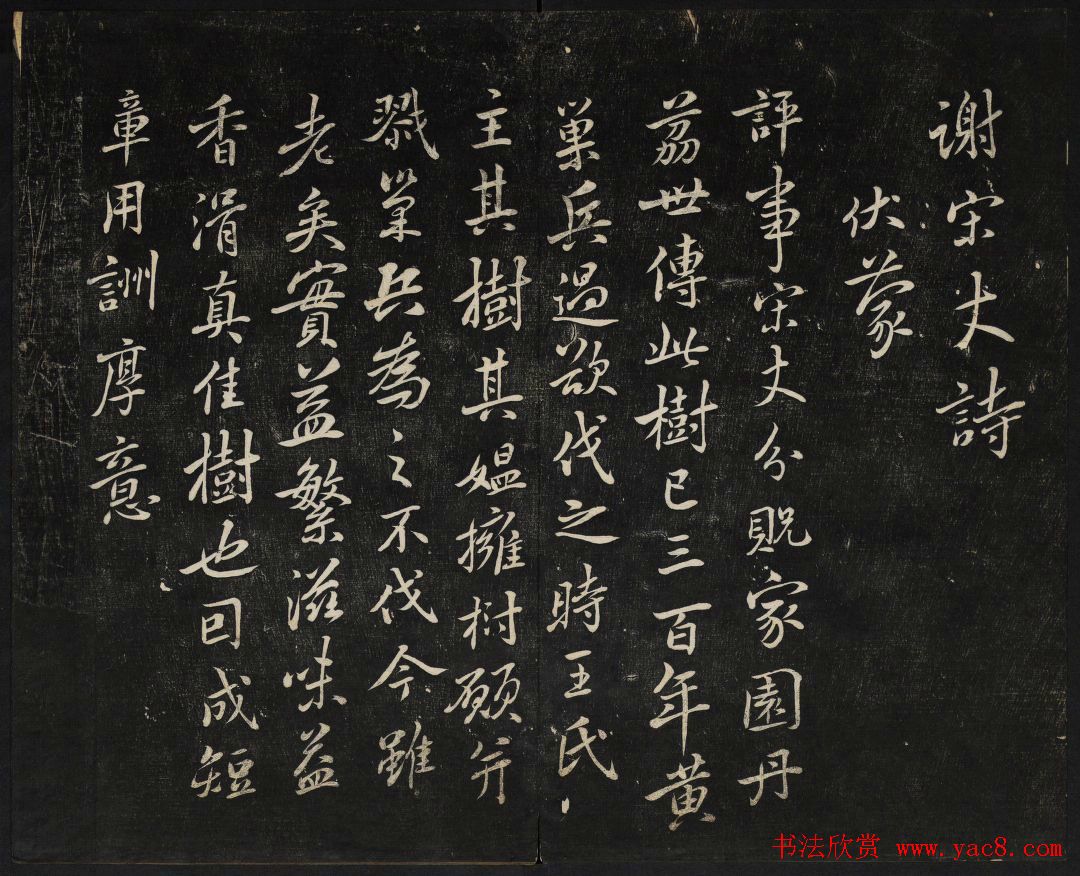 谢宋丈詩
伏蒙
評事宋丈分貺家園丹
荔世傳此樹已三百年黄
巢兵過欲伐之時王氏
主其樹其媪擁樹願并
戮巢兵為之不伐今雖
老矣實益繁滋味益
香滑真佳樹也因成短
章用詶厚意
书法欣赏 www.yac8.com